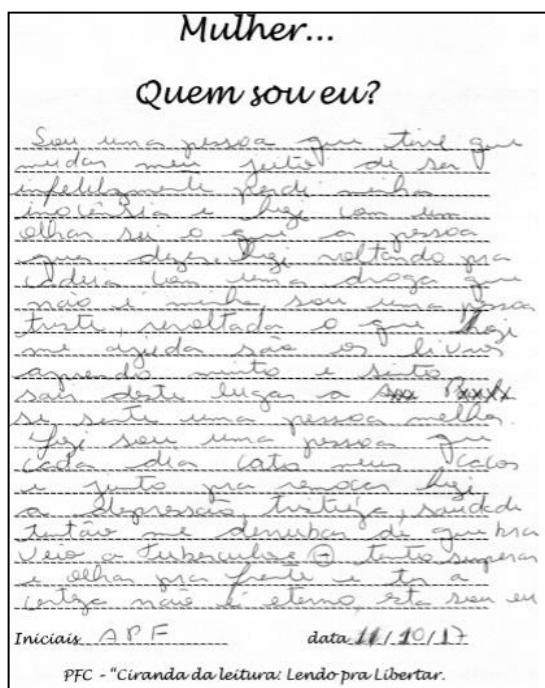 Mulher...
Quem sou eu?
Sou uma pessoa que tive que
mudar meu jeito de ser
infelilzmente perdi minha
inocência e hoje com um
olhar sei o que a pessoa
quer dizer. Hoje voltando pra
cadeia com uma droga que
não é minha, sou uma pessoa
triste, revoltada o que hoje
me ajuda são os livros
aprendo muito e sinto
sair deste lugar a
se sente uma pessoa melhor.
Hoje sou uma pessoa que
cada dia cato meus cacos
e junto pra renoçar hoje
a depressão, tristeza, saudade
tentão me derrubar de quebra
veio a Tuberculose tento superar
e olhar pra frente e ter a
certeza não é eterno, esta sou eu
Iniciais APF data 11/10/17
PFC - "Ciranda da leitura: Lendo pra Libertar.